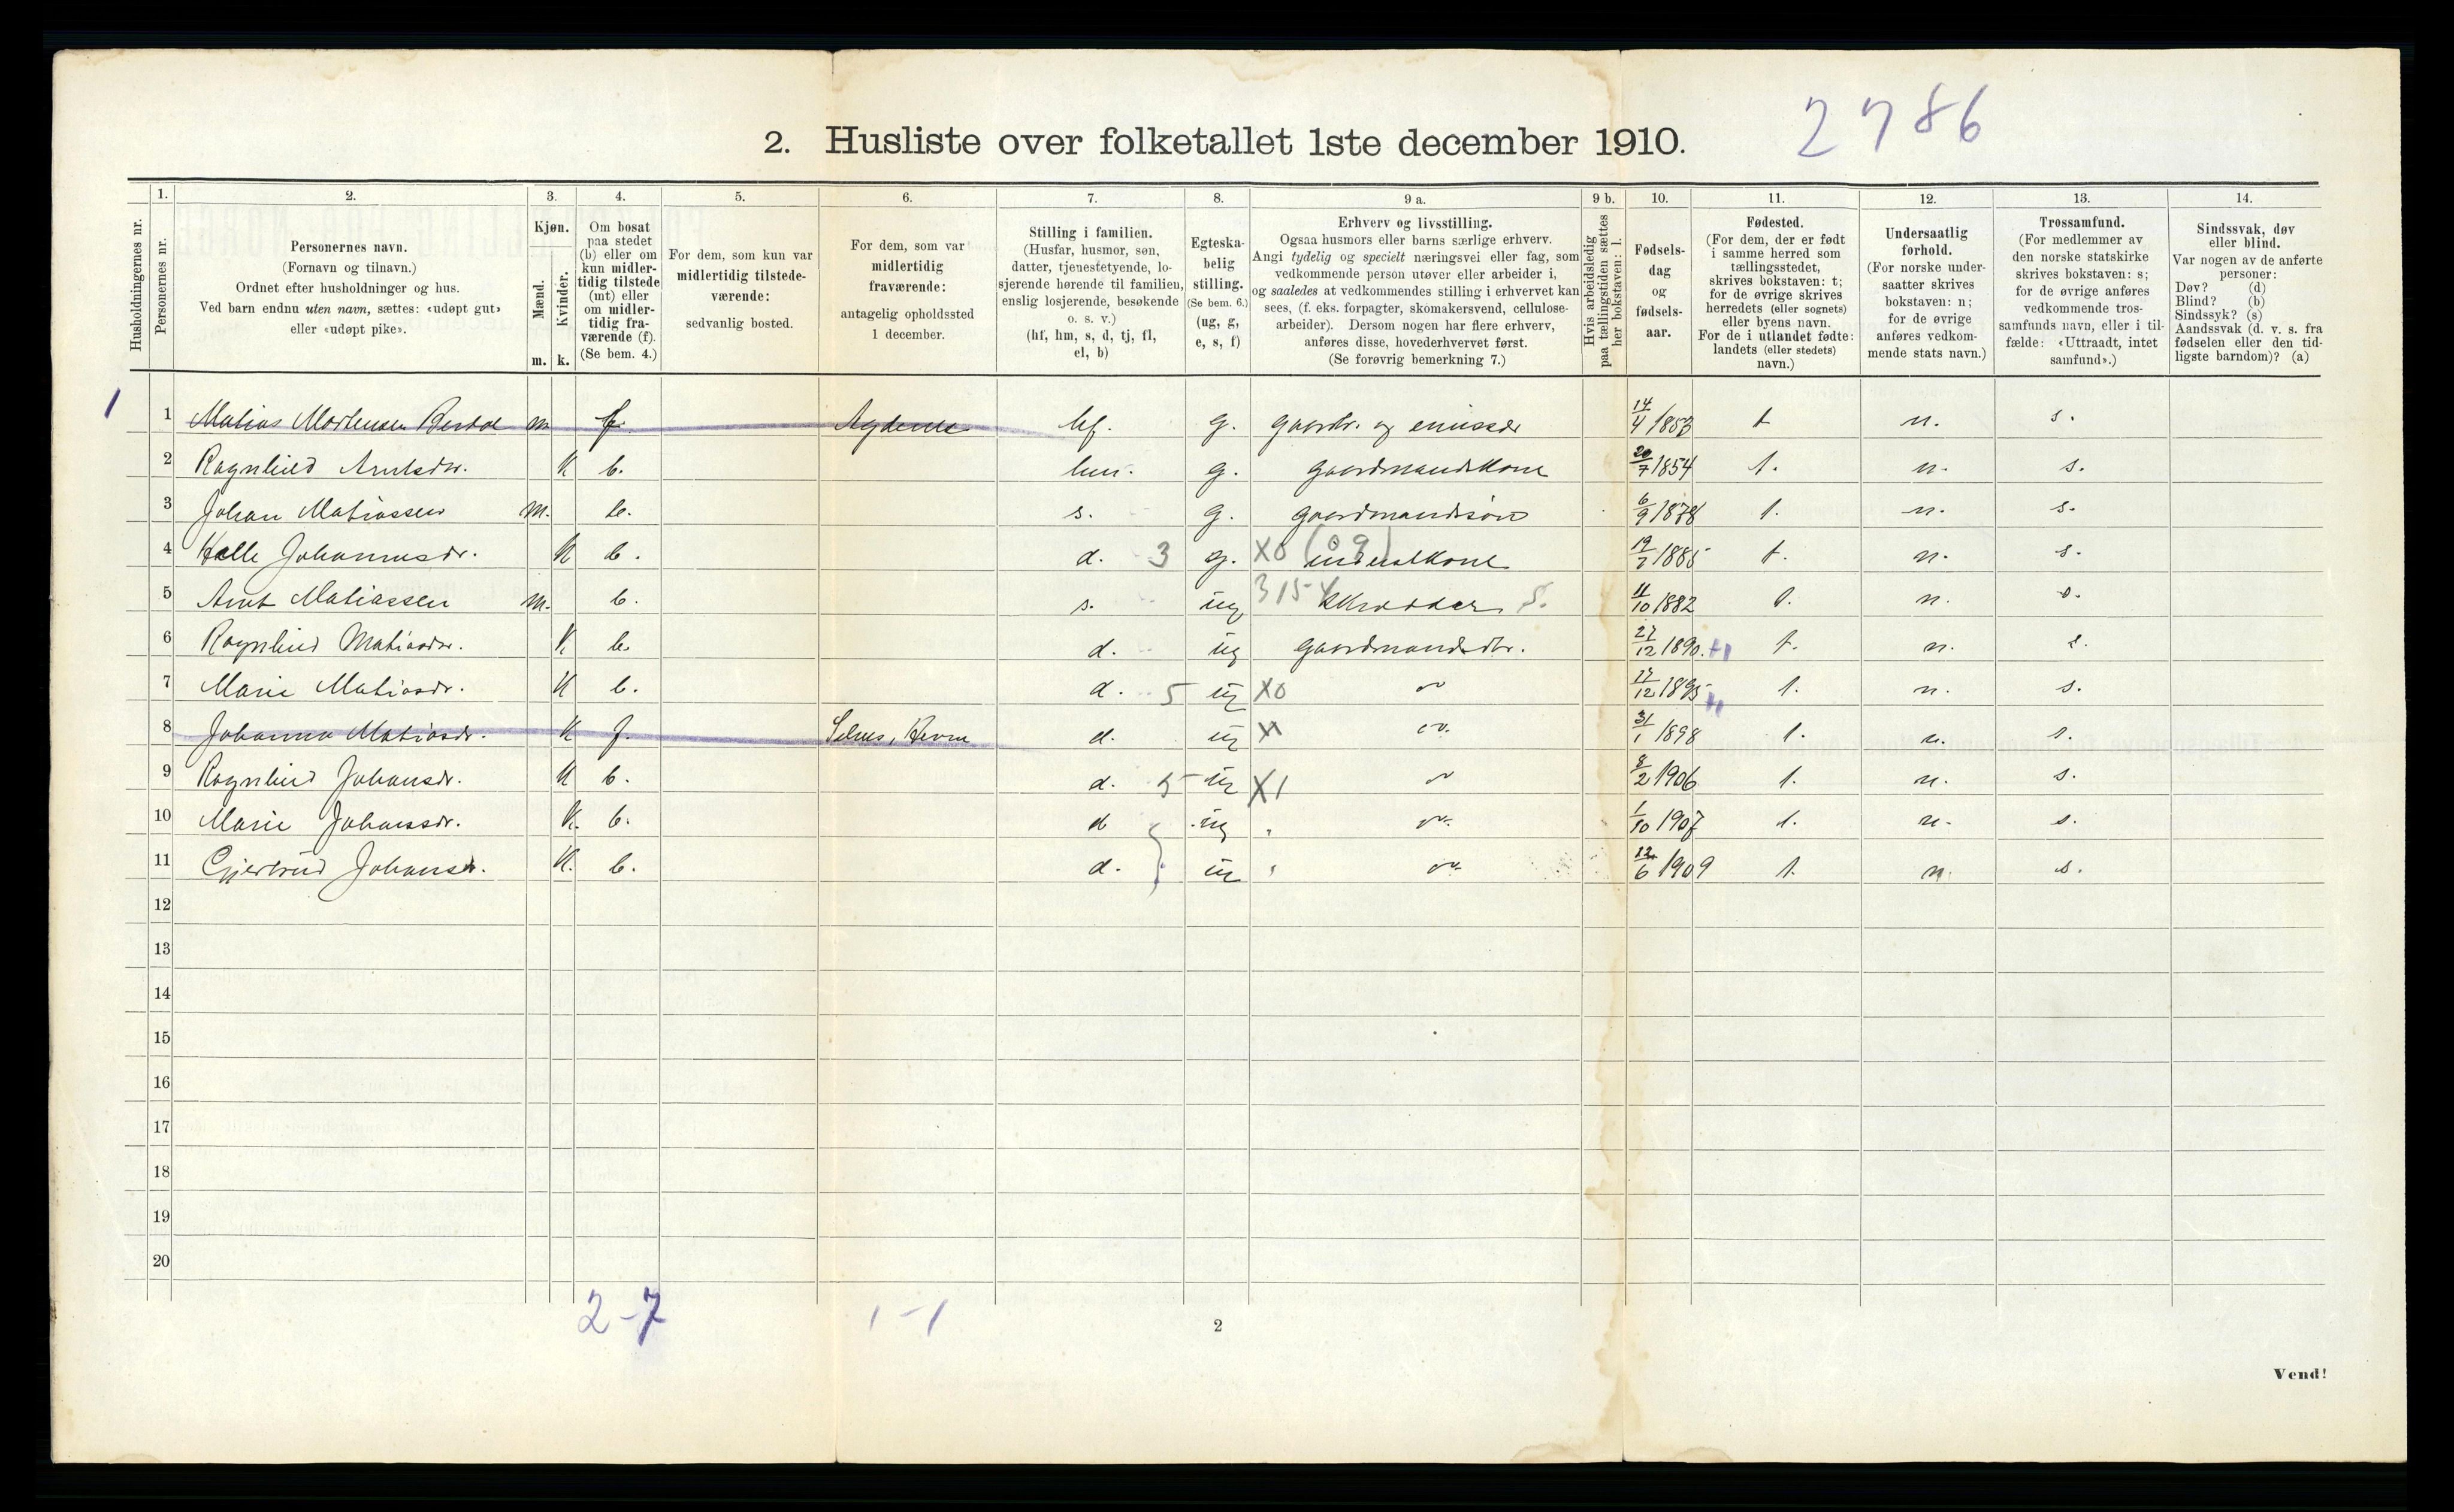 2786
2. Husliste over folketallet 1ste december 1910.
1. 2. 3. 4. 5. 6. 7. 8. 9 a. 9 b. 10. 11. 12. 13. 14.
Husholdningernes nr.
Personernes nr.
Personernes navn.
(Fornavn og tilnavn.)
Ordnet efter husholdninger og hus.
Ved barn endnu uten navn, sættes: «udøpt gut»
eller «udøpt pike».
Kjøn.
Mænd.
Kvinder.
m. k.
Om bosat
paa stedet
(b) eller om
kun midler-
tidig tilstede
(mt) eller
om midler-
tidig fra-
værende (f).
(Se bem. 4.)
For dem, som kun var
midlertidig tilstede-
værende:
sedvanlig bosted.
For dem, som var
midlertidig
fraværende:
antagelig opholdssted
1 december.
Stilling i familien.
(Husfar, husmor, søn,
datter, tjenestetyende, lo-
sjerende hørende til familien,
enslig losjerende, besøkende
o. s. v.)
(hf, hm, s, d, tj, fl,
el, b)
Egteska-
belig
stilling.
(Se bem. 6.)
(ug, g,
e, s, f)
Erhverv og livsstilling.
Ogsaa husmors eller barns særlige erhverv.
Angi tydelig og specielt næringsvei eller fag, som
vedkommende person utøver eller arbeider i,
og saaledes at vedkommendes stilling i erhvervet kan
sees, (f. eks. forpagter, skomakersvend, cellulose-
arbeider). Dersom nogen har flere erhverv,
anføres disse, hovederhvervet først.
(Se forøvrig bemerkning 7.)
Hvis arbeidsledig
paa tællingstiden sættes
her bokstaven: l.
Fødsels-
dag
og
fødsels-
aar.
Fødested.
(For dem, der er født
i samme herred som
tællingsstedet,
skrives bokstaven: t;
for de øvrige skrives
herredets (eller sognets)
eller byens navn.
For de i utlandet fødte:
landets (eller stedets)
navn.)
Undersaatlig
forhold.
(For norske under-
saatter skrives
bokstaven: n;
for de øvrige
anføres vedkom-
mende stats navn.)
Trossamfund.
(For medlemmer av
den norske statskirke
skrives bokstaven: s;
for de øvrige anføres
vedkommende tros-
samfunds navn, eller i til-
fælde: «Uttraadt, intet
samfund».)
Sindssvak, døv
eller blind.
Var nogen av de anførte
personer:
Døv? (d)
Blind? (b)
Sindssyk? (s)
Aandssvak (d. v. s. fra
fødselen eller den tid-
ligste barndom)? (a)
1 1 Matias Mortensen m f. Agdenes hf. g. gaardbr. og emissær 14/4 1853 t n. s.
2 Ragnhild Arntsdtr. K b. hm. g. gaardmandskone 20/7 1854 t. n. s.
3 Johan Matiassen m. b. s. g. gaardmandssøn 6/9 1878 t. n. s.
4 Johannesdr. K b. d. 3 g. X0 (09) 19/7 1885 t. n. s.
5 Arnt Matiassen m. b. s. ug 315 Skrædder S. 11/10 1882 t. n. s.
6 Ragnhild Matiasdr. K b. d. ug gaardmandsdtr. 27/12 1890. t. n. s.
7 Marie Matiasdr. K b. d. 5 ug X0 " 17/12 1895 t. n. s.
8 Johanna Matiasdr. K f. d. ug X " 31/1 1898 t. n. s.
9 Ragnhild Johansdr. K b. d. 5 ug X1 " 8/2 1906 t. n. s.
10 Marie Johansdr. K. b. d ug " 1/10 1907 t. n. s.
11 Gjertrud Johansdr. K. b. d. ug " 12/6 1909 t. n. s.
12
13
14
15
16
17
18
19
20
2-7 1-1
2
Vend!